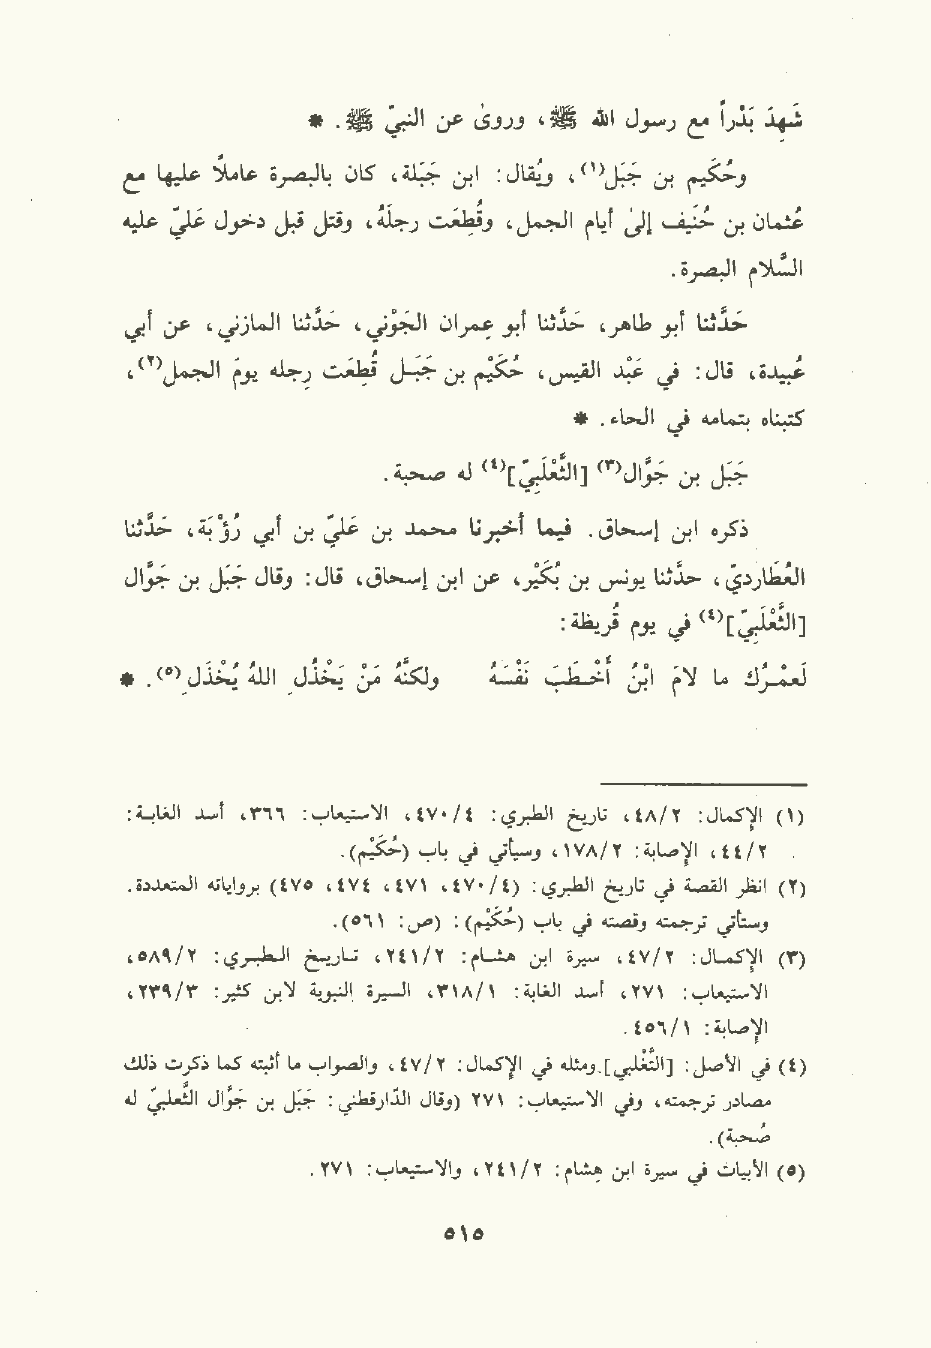 شَهِدَ بَدْراً مع رسول الله ﷺ، وروىٰ عن النبيّ ﷺ. *
وحُكَيم بن جَبَل(١)، ويُقال: ابن جَبَلة، كان بالبصرة عاملاً عليها مع
عُثمان بن حُنَيف إلىٰ أيام الجمل، وقُطِعَت رجلُه، وقتل قبل دخول عَليّ عليه
السَّلام البصرة.
حَدَّثنا أبو طاهر، حَدَّثنا أبو عِمران الجَوْني، حَدَّثنا المازني، عن أبي
عُبيدة، قال: في عَبْد القيس، حُكَيْم بن جَبَل قُطِعَت رِجله يومَ الجمل(٢)،
كتبناه بتمامه في الحاء. *
جَبَل بن جَوَّال(٣) [الثَّعْلَبِيّ](٤) له صحبة.
ذكره ابن إسحاق. فيما أخبرنا محمد بن عَليّ بن أبي رُؤْبَة، حَدَّثنا
العُطَارديّ، حدَّثنا يونس بن بُكَيْر، عن ابن إسحاق، قال: وقال جَبَل بن جَوَّال
[الثَّعْلَبيّ](٤) في يوم قُريظة:
لَعمْرُك ما لاَمَ ابْنُ أَخْطَبَ نَفْسَهُ ولكنَّهُ مَنْ يَخْذُلِ اللهُ يُخْذَلِ(٥). *
(١) الإكمال: ٤٨/٢، تاريخ الطبري: ٤٧٠/٤، الاستيعاب: ٣٦٦، أسد الغابة:
٤٤/٢، الإصابة: ١٧٨/٢، وسيأتي في باب (حُكَيْم).
(٢) انظر القصة في تاريخ الطبري: (٤٧٠/٤، ٤٧١، ٤٧٤، ٤٧٥) برواياته المتعددة.
وستأتي ترجمته وقصته في باب (حُكَيْم): (ص: ٥٦١).
(٣) الإكمال: ٤٧/٢، سيرة ابن هشام: ٢٤١/٢، تاريخ الطبري: ٥٨٩/٢،
الاستيعاب: ٢٧١، أسد الغابة: ٣١٨/١، السيرة النبوية لابن كثير: ٢٣٩/٣،
الإصابة: ٤٥٦/١.
(٤) في الأصل: [التَّغْلبي]. ومثله في الإكمال: ٤٧/٢، والصواب ما أثبته كما ذكرت ذلك
مصادر ترجمته، وفي الاستيعاب: ٢٧١ (وقال الدَّارقطني: جَبَل بن جَوَّال الثَّعلبيّ له
صُحبة).
(٥) الأبيات في سيرة ابن هِشام: ٢٤١/٢، والاستيعاب: ٢٧١.
٥١٥